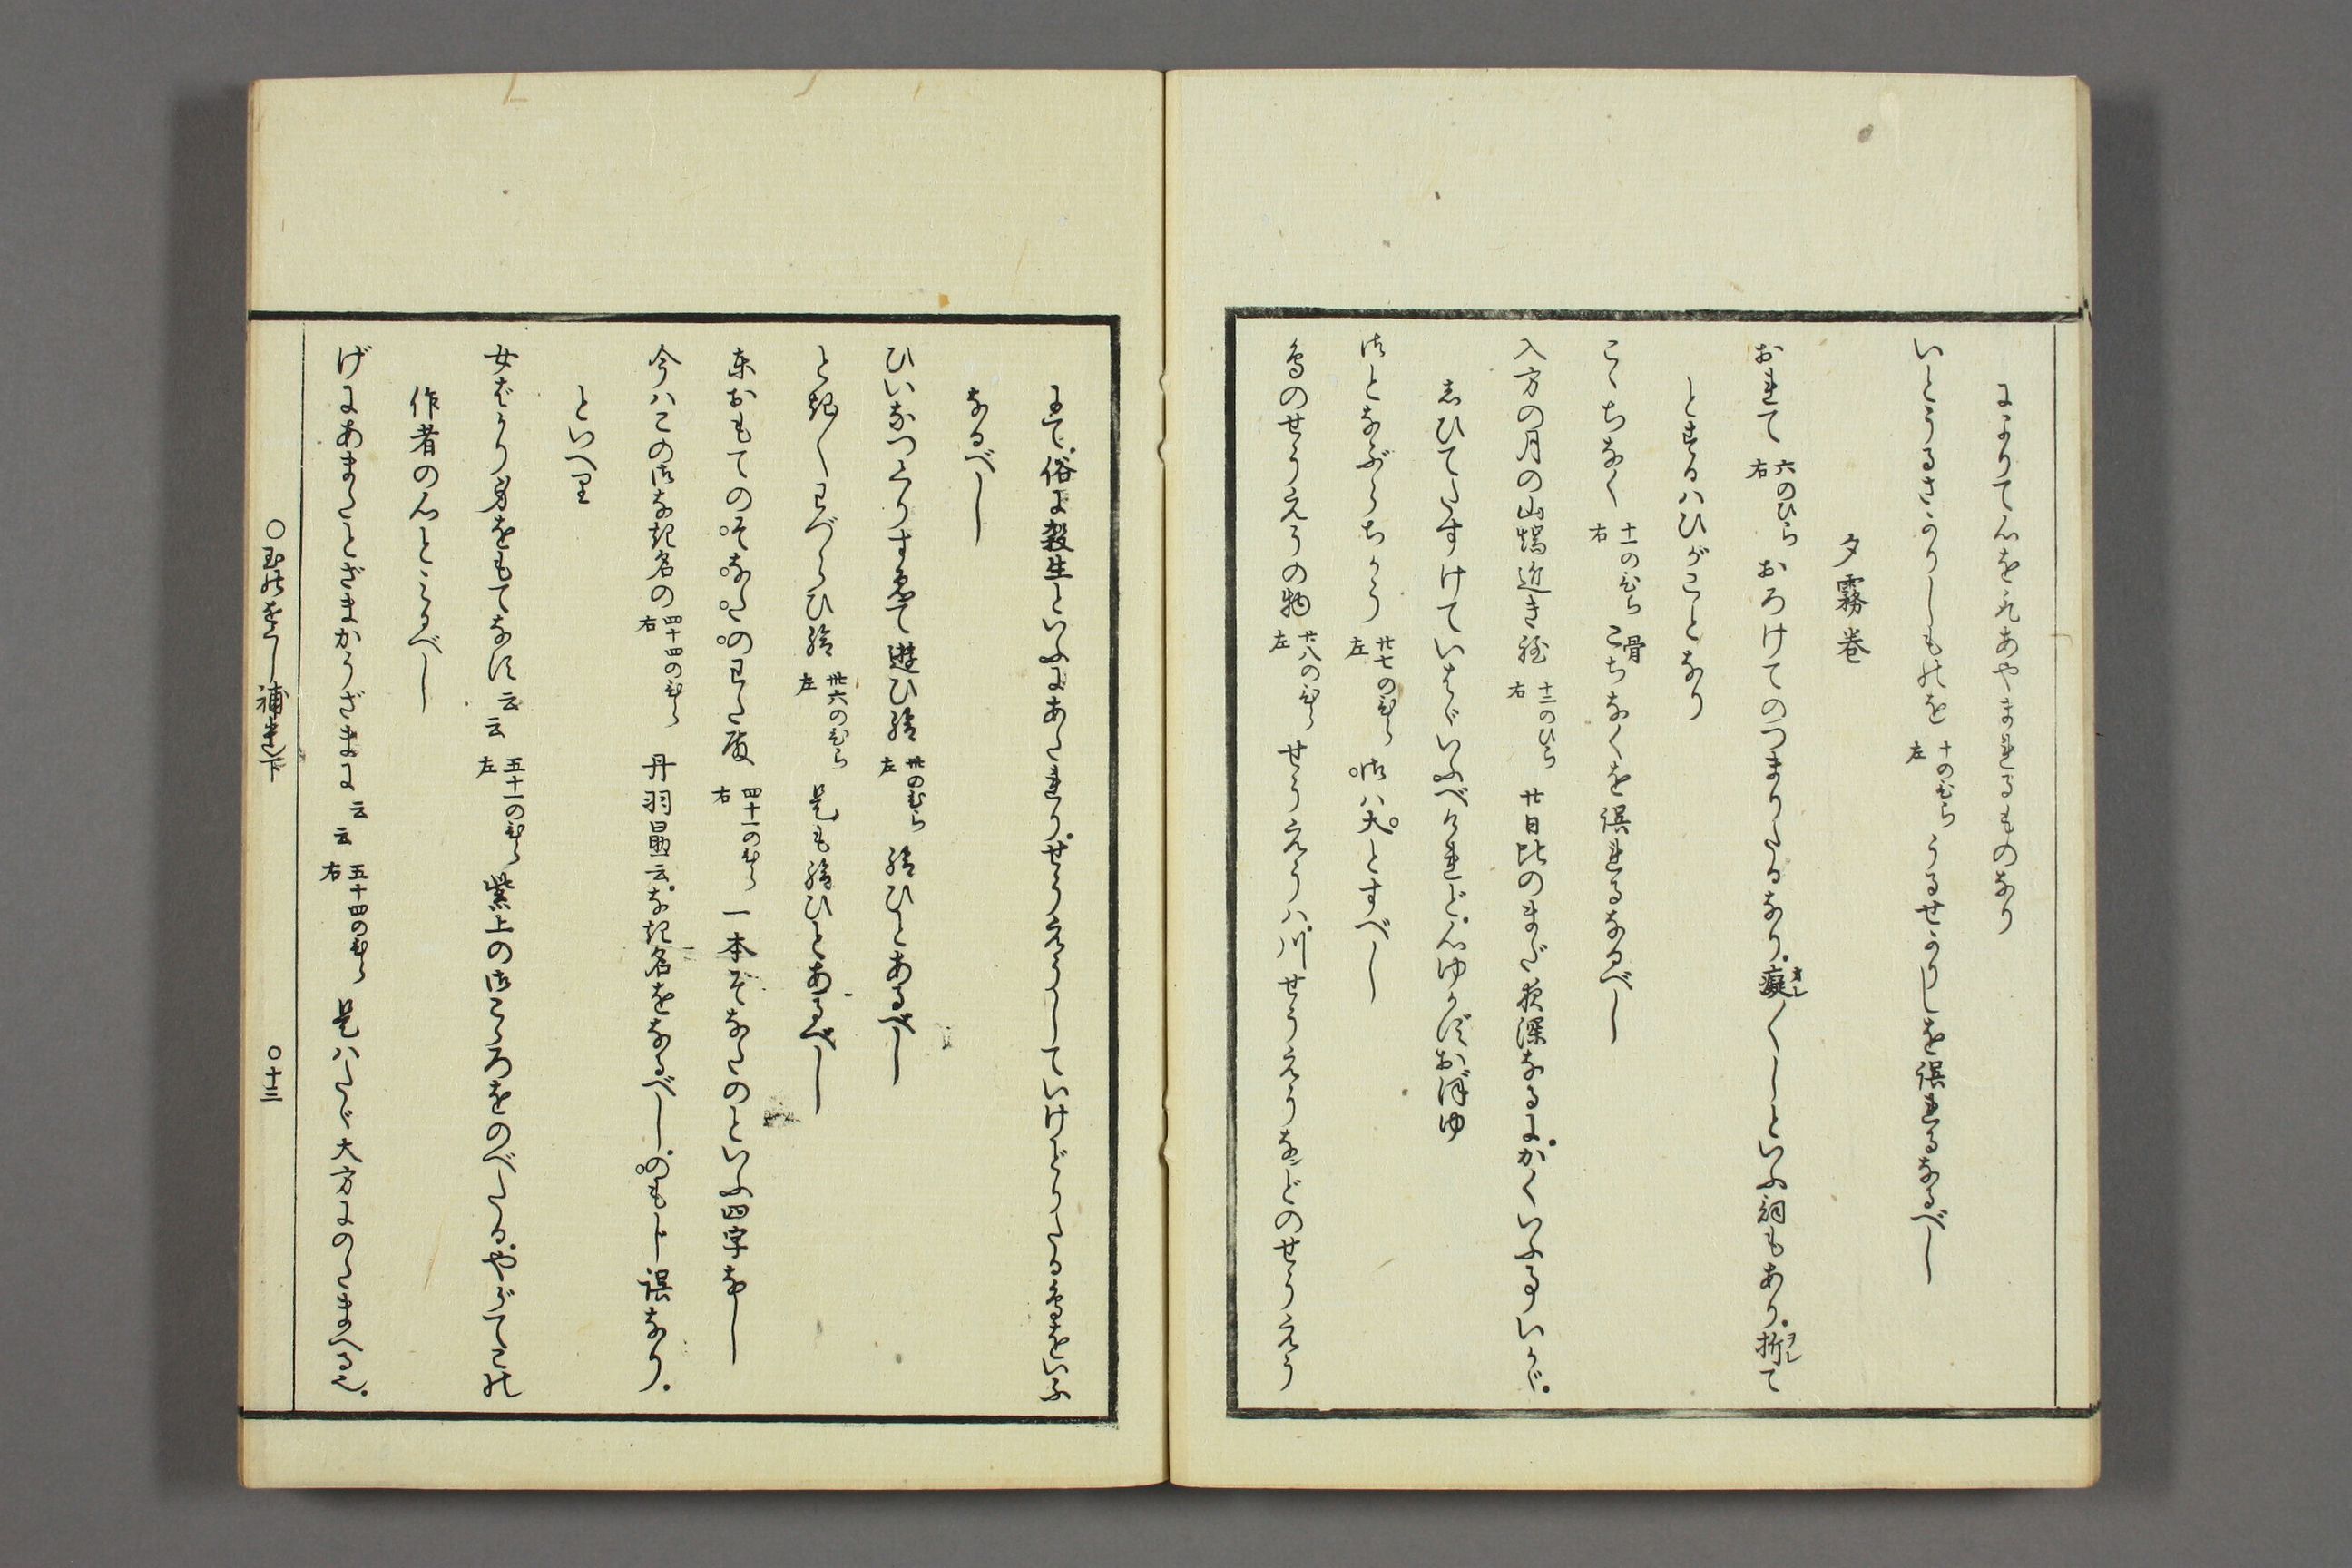 によりて心を え あやまれるものなり
いとうるさかりしものを 十のひら左 うるせかりしを誤れるなるべし
夕霧巻
おれて 六のひら右 おろけてのつまりたるなり。癡オレ〱しといふ詞もあり。折ヲレて
とするハひがことなり
こゝちなく 十一のひら右 骨こちなくを誤れるなるべし
入方の月の山端近き程 十二のひら右 廿日比のまだ夜深なるに。かくいふ事いかゞ。
しひてたすけていはゞいふべけれど。心ゆかずおぼゆ
御となぶらちかう 廿七のひら左 御ハ大とすべし
鳥のせうえうの物 廿八のひら左 せうえうハ。川せうえうなどのせうえう
にて。俗に殺生といふにあたれり。せうえうしていけどりたる鳥をいふ
なるべし
ひいなつくりすゑて遊ひ給 卅のひら左 給ひとあるべし
とき〲わづらひ給 卅六のひら左 是も給ひとあるべし
東おもてのそなたのわた殿 四十一のひら右 一本そなたのといふ四字なし
今ハこの御なき名の 四十四のひら右 丹羽勗云。なき名をなるべし。のもじ誤なり。
といへり
女ばかり身をもてなす云云 五十一のひら左 紫上の御こゝろをのべたる。やがてこれ
作者の心とみるべし
げにあまたとざまかうざまに云云 五十四のひら右 是ハたゞ大方にのたまへる也。
○玉のをくし補遺下 ○十三